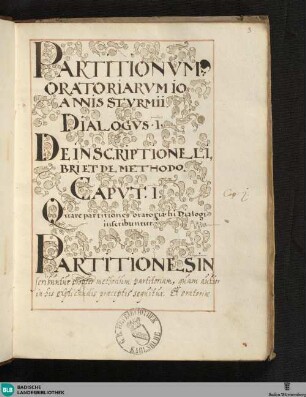 3
PARTITIONVM
ORATORIARVM IO
ANNIS STVRMII
DIALOGVS·I·
DE INSCRIPTIONE LI,
BRI ET DE METHODO.
CAPVT: I:
Cap j
Quare partitiones oratoriæ hi Dialogi
inscribuntur.
PARTITIONES IN
scribuntur propter methodum partitionum, quam auctor
in his explicandis præceptis sequitur. Et oratoriæ
KARLSRUHE
BLB
BADISCHE
LANDESBIBLIOTHEK